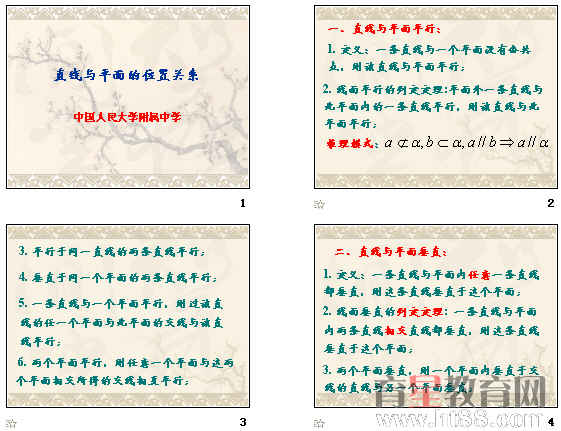 直线与平面的位置关系
中国人民大学附属中学
1
一、直线与平面平行：
1. 定义：一条直线与一个平面没有公共
点，则该直线与平面平行；
2. 线面平行的判定定理：平面外一条直线与
此平面内的一条直线平行，则该直线与此
平面平行；
推理模式：a⊄α,b⊂α,a//b⇒a//α
2
3. 平行于同一直线的两条直线平行；
4. 垂直于同一个平面的两条直线平行；
5. 一条直线与一个平面平行，则过该直
线的任一个平面与此平面的交线与该直
线平行；
6. 两个平面平行，则任意一个平面与这两
个平面相交所得的交线相互平行；
3
二、直线与平面垂直：
1. 定义：一条直线与平面内任意一条直线
都垂直，则这条直线垂直于这个平面；
2. 线面垂直的判定定理：一条直线与平面
内两条直线相交直线都垂直，则这条直线
垂直于这个平面；
3. 两个平面垂直，则一个平面内垂直于交
线的直线与另一个平面垂直；
4
育星教育网
www.ht88.com